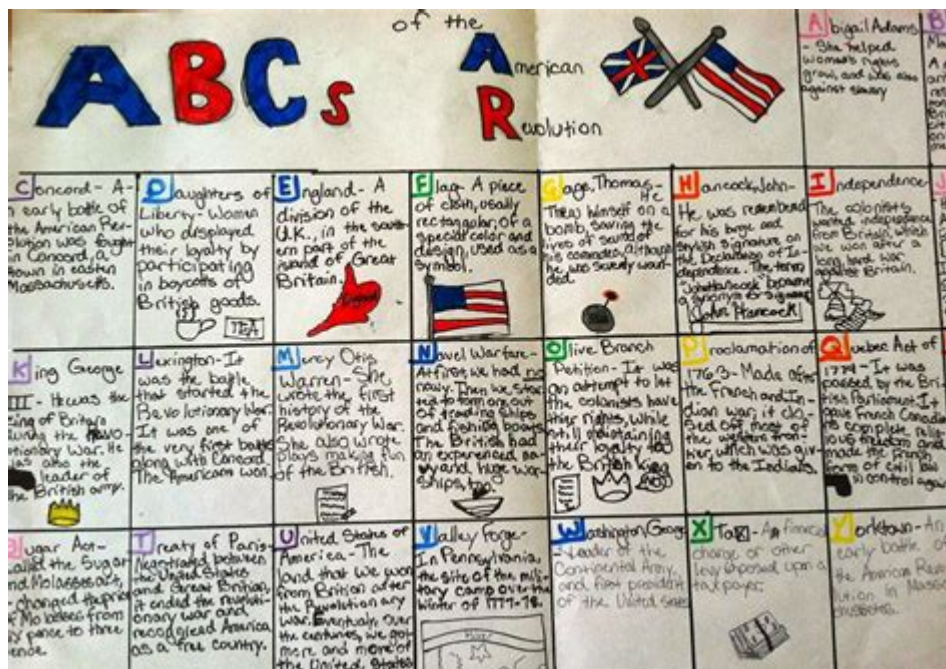 of the
ABCs
American
Revolution
Abigail Adams
- She helped
woman's rights
grow, and was also
against slavery
B
Concord- A-
n early battle of
the American Rev-
olution was fought
in Concord, a
town in eastern
Massachusetts.
Daughters of
Liberty- Women
who displayed
their loyalty by
participating
in boycots of
British goods.
TEA
England- A
division of the
U.K., in the south-
ern part of the
island of Great
Britain.
England
Flag- A piece
of cloth, usually
rectangular, of a
special color and
design, used as a
symbol.
Gage, Thomas-
He
Threw himself on a
bomb, saving the
lives of
his comrades, although
he was severly woun-
ded.
Hancock, John-
He was remembered
for his large and
stylish signature on
the Declaration of In-
dependence. The term
"John Hancock" became
a synonym for signature
John Hancock
Independence
The colonists
wanted independence
from Britain, which
we won after a
long, hard war
against Britain.
King George
III- He was the
king of Britain
during the Revo-
lutionary War. He
was also the
leader of
the British army.
Lexington- It
was the battle
that started the
Revolutionary War.
It was one of
the very first battles
along with Concord.
The Americans won.
Mercy Otis
Warren- She
wrote the first
history of the
Revolutionary War.
She also wrote
plays making fun
of the British.
Naval Warfare-
At first we had no
navy. Then we star-
ted to team one out
of trading ships
and fishing boats.
The British had
an experienced na-
vy and huge war
ships, too.
Olive Branch
Petition- It was
an attempt to let
the colonists have
their rights, while
still maintaining
their loyalty to
the British king
Proclamation of
1763- Made after
the French and In-
dian war; it clo-
sed off most of
the western fron-
tier, which was giv-
en to the Indians.
Quebec Act of
1774- It was
passed by the Bri-
tish Parliament. It
gave French Canada
its complete relig-
ious freedom and
made the French
form of civil law
in control again
Sugar Act-
called the Sugar
and Molasses act,
changed the price
of Molasses from
six pence to three
pence.
Treaty of Paris-
Negotiated between
the United States
and Great Britian,
it ended the revoluti-
onary war and
recognized America
as a free country.
United States of
America- The
land that we won
from British after
the Revolution ary
war. Eventualy, over
the centuries, we got
more and more of
the United States
Valley Forge-
In Pennsylvania,
the site of the mili-
tary camp over the
winter of 1777-78.
Washington, George
- Leader of the
Continental Army,
and first president
of the United States
TaX- A financial
charge or other
levy imposed upon a
taxpayer.
Yorktown- An
early battle of
the American Revo-
lution in Massa-
chusetts.